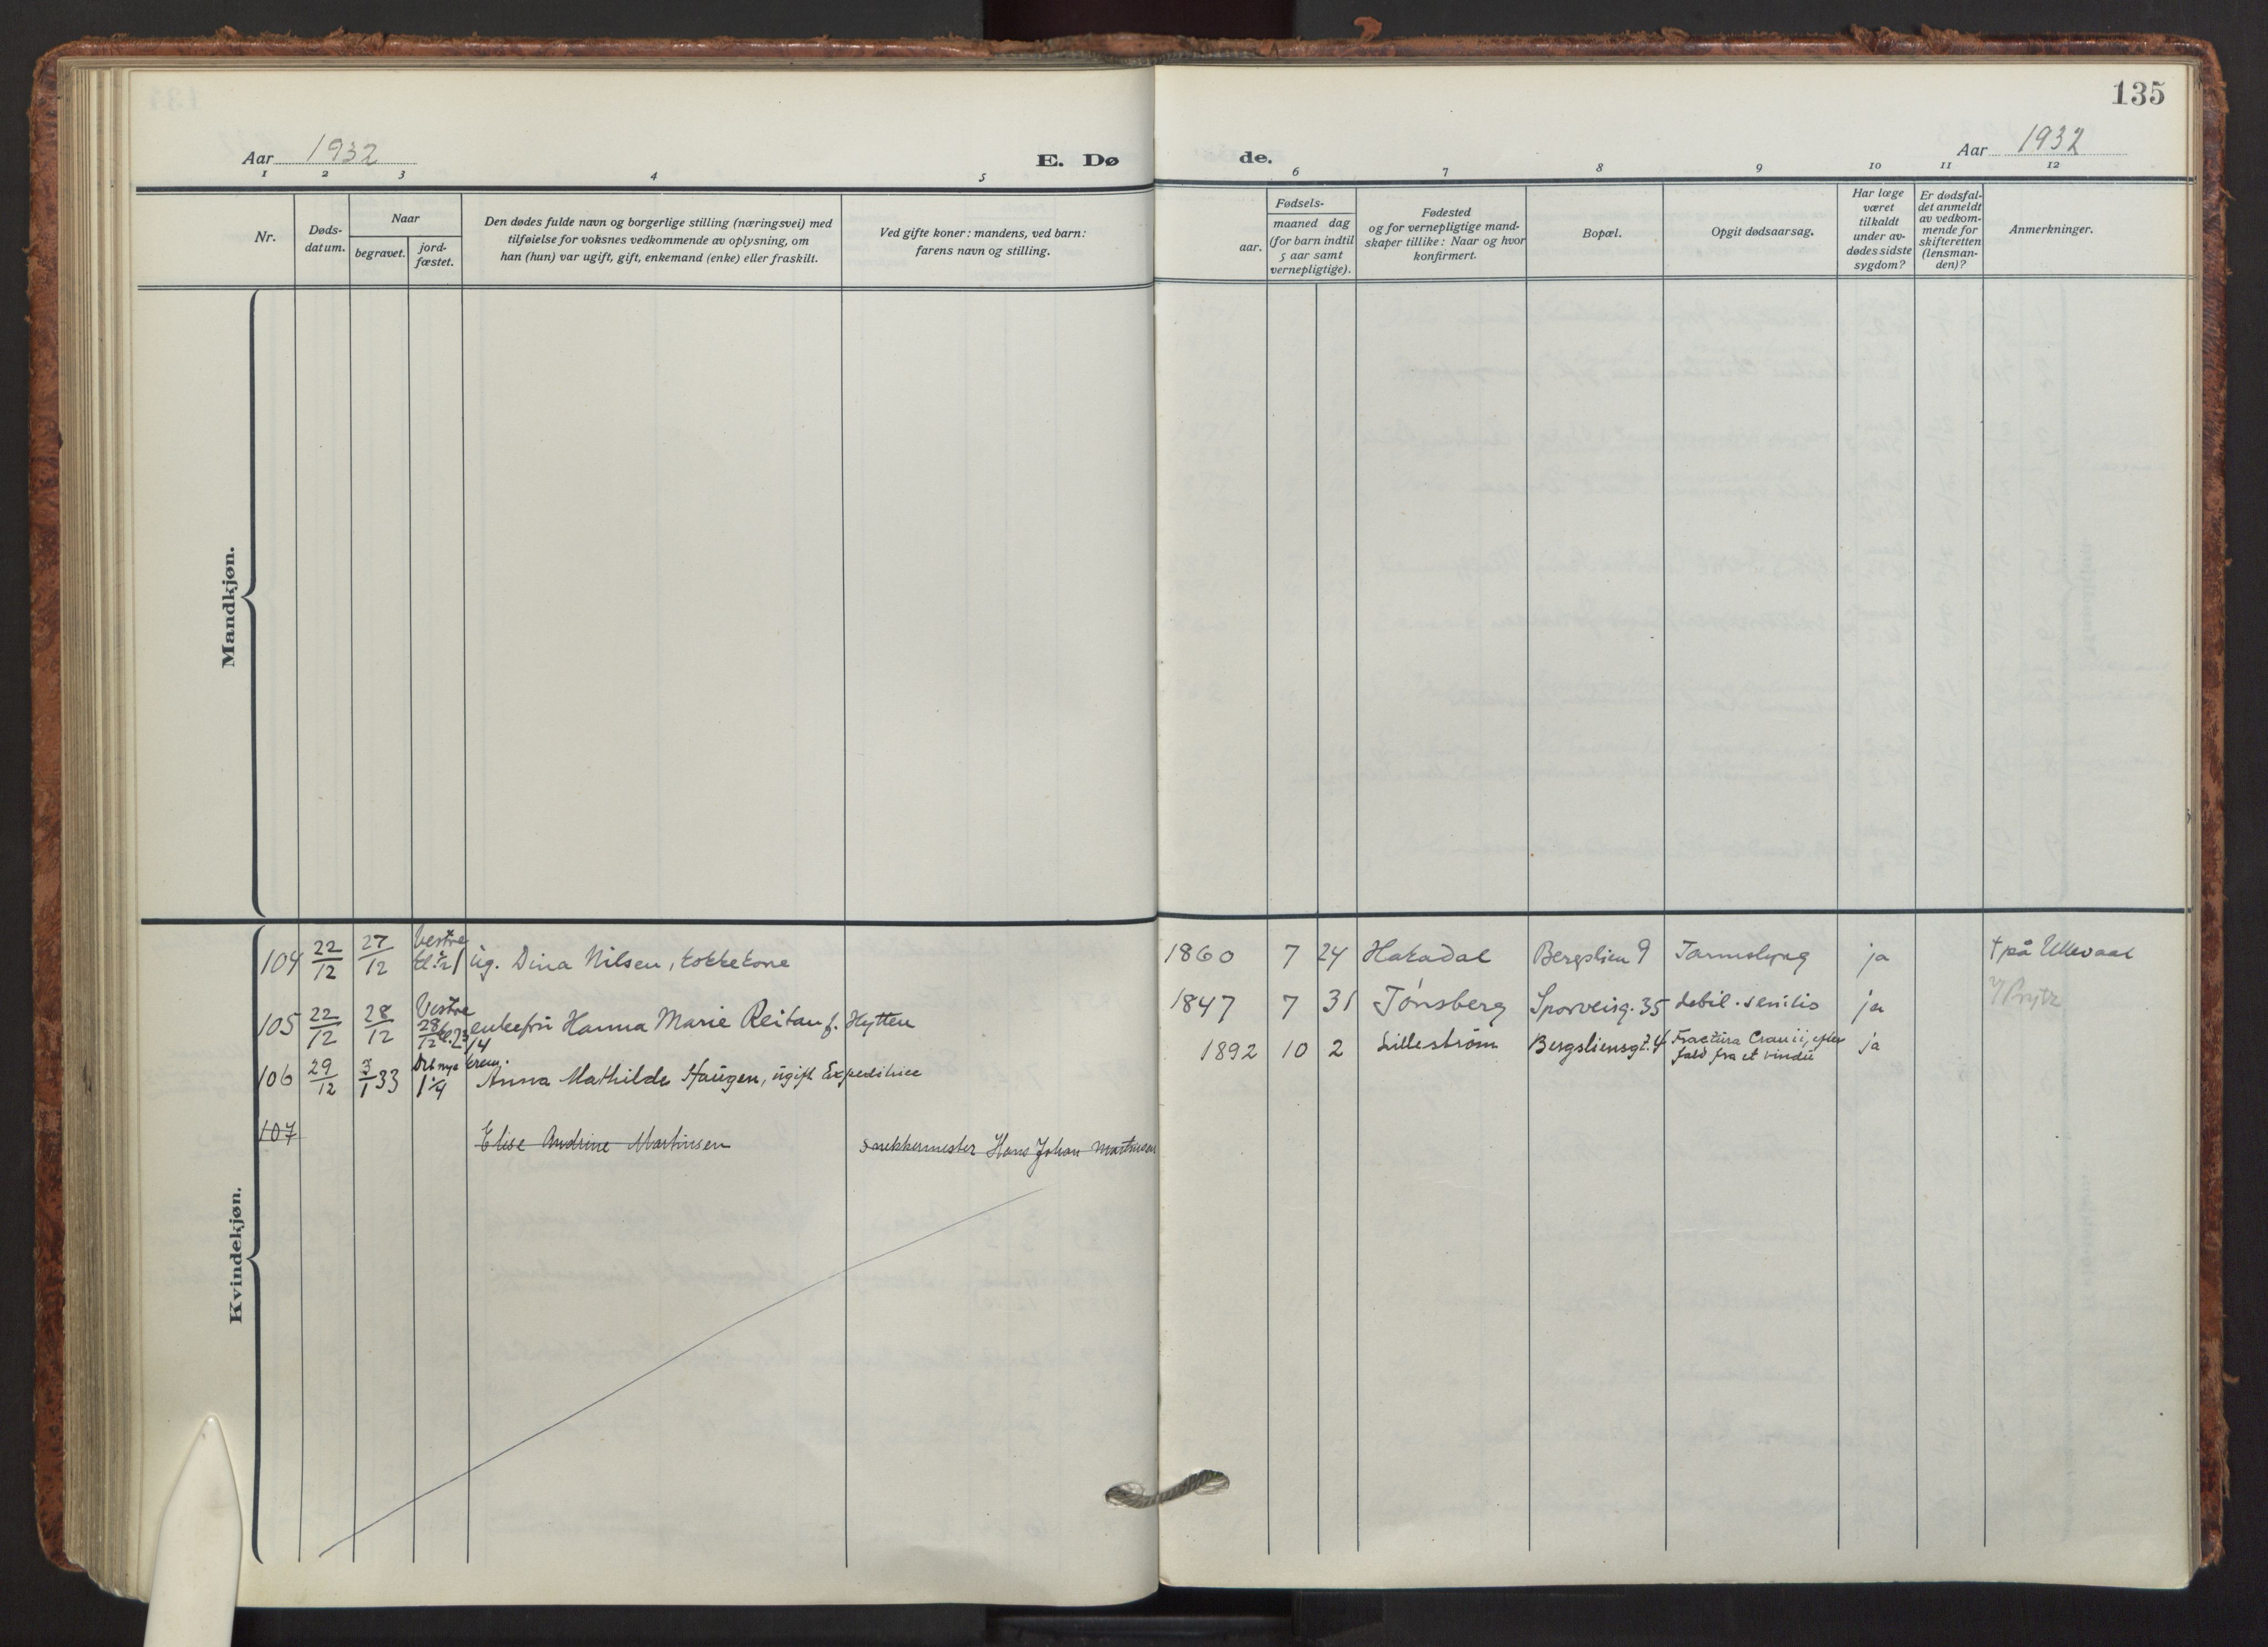 135
Aar 1932
E. Dø
de.
Aar 1932
1 2 3 4 5 6 7 8 9 10 11 12
Nr.
Døds-
datum.
Naar
begravet.
jord-
fæstet.
Den dødes fulde navn og borgerlige stilling (næringsvei) med
tilføielse for voksnes vedkommende av oplysning, om
han (hun) var ugift, gift, enkemand (enke) eller fraskilt.
Ved gifte koner: mandens, ved barn:
farens navn og stilling.
Fødsels-
aar.
maaned dag
(for barn indtil
5 aar samt
vernepligtige).
Fødested
og for vernepligtige mand-
skaper tillike: Naar og hvor
konfirmert.
Bopæl.
Opgit dødsaarsag.
Har læge
været
tilkaldt
under av-
dødes sidste
sygdom?
Er dødsfal-
det anmeldt
av vedkom-
mende for
skifteretten
(lensman-
den)?
Anmerkninger.
Mandkjøn.
Kvindekjøn.
104 22/12 27/12 Vestre ug. Dina Nilsen, kokkekone 1860 7 24 Hakadal Bergslien 9 Tarmslyng ja † på Ullevaal
105 22/12 28/12 Vestre 28/12 enkefru Hanna Marie Reitan f. Hytten 1847 7 31 Tønsberg Sporveisg. 35 debil. senilis ja
106 29/12 3/1 33 Det nye krem. Anna Mathilde Haugen, ugift Expeditrice 1892 10 2 Lillestrøm Bergsliensgt. 4 Fractura Cranii, efter
fald fra et vindu ja
107 Elise Andrine Martinsen snekkermester Hans Johan Martinsen